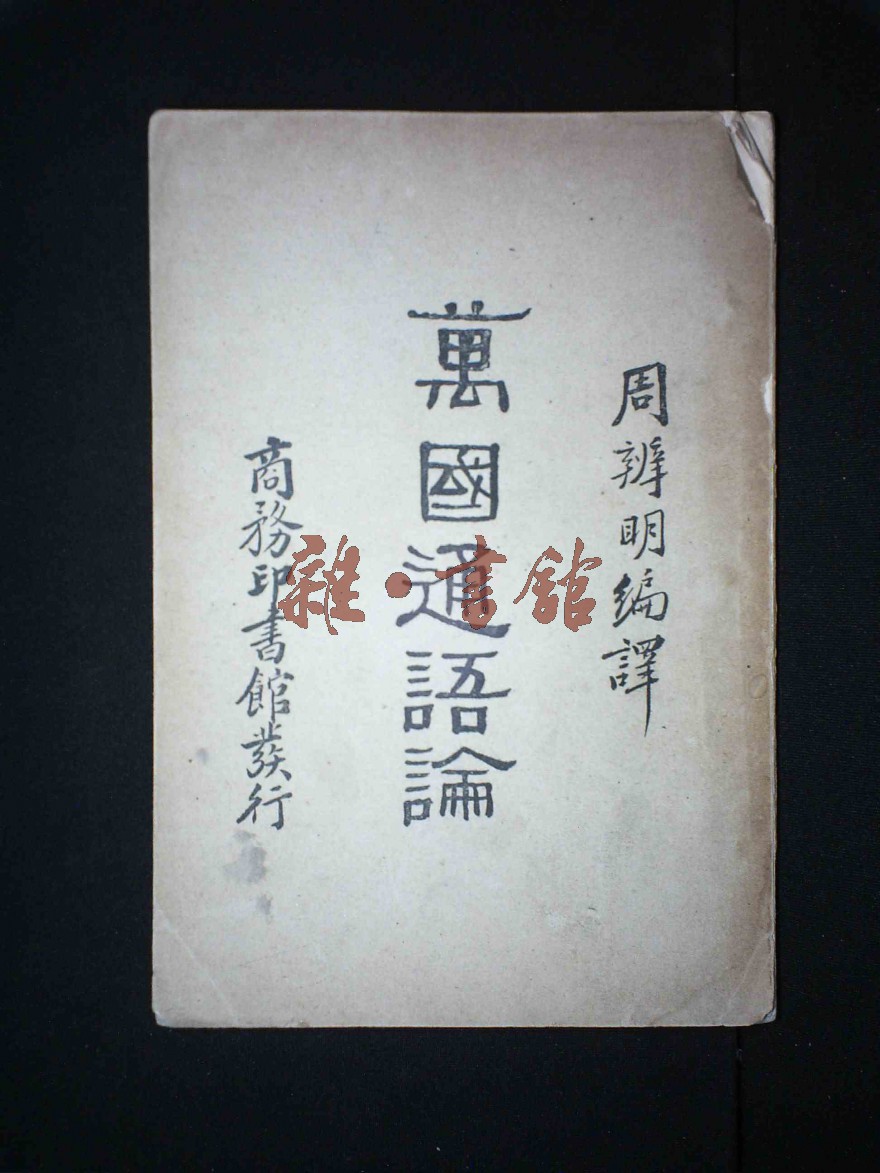 周辨明編譯
萬國通語論
商務印書館發行
雜·書館